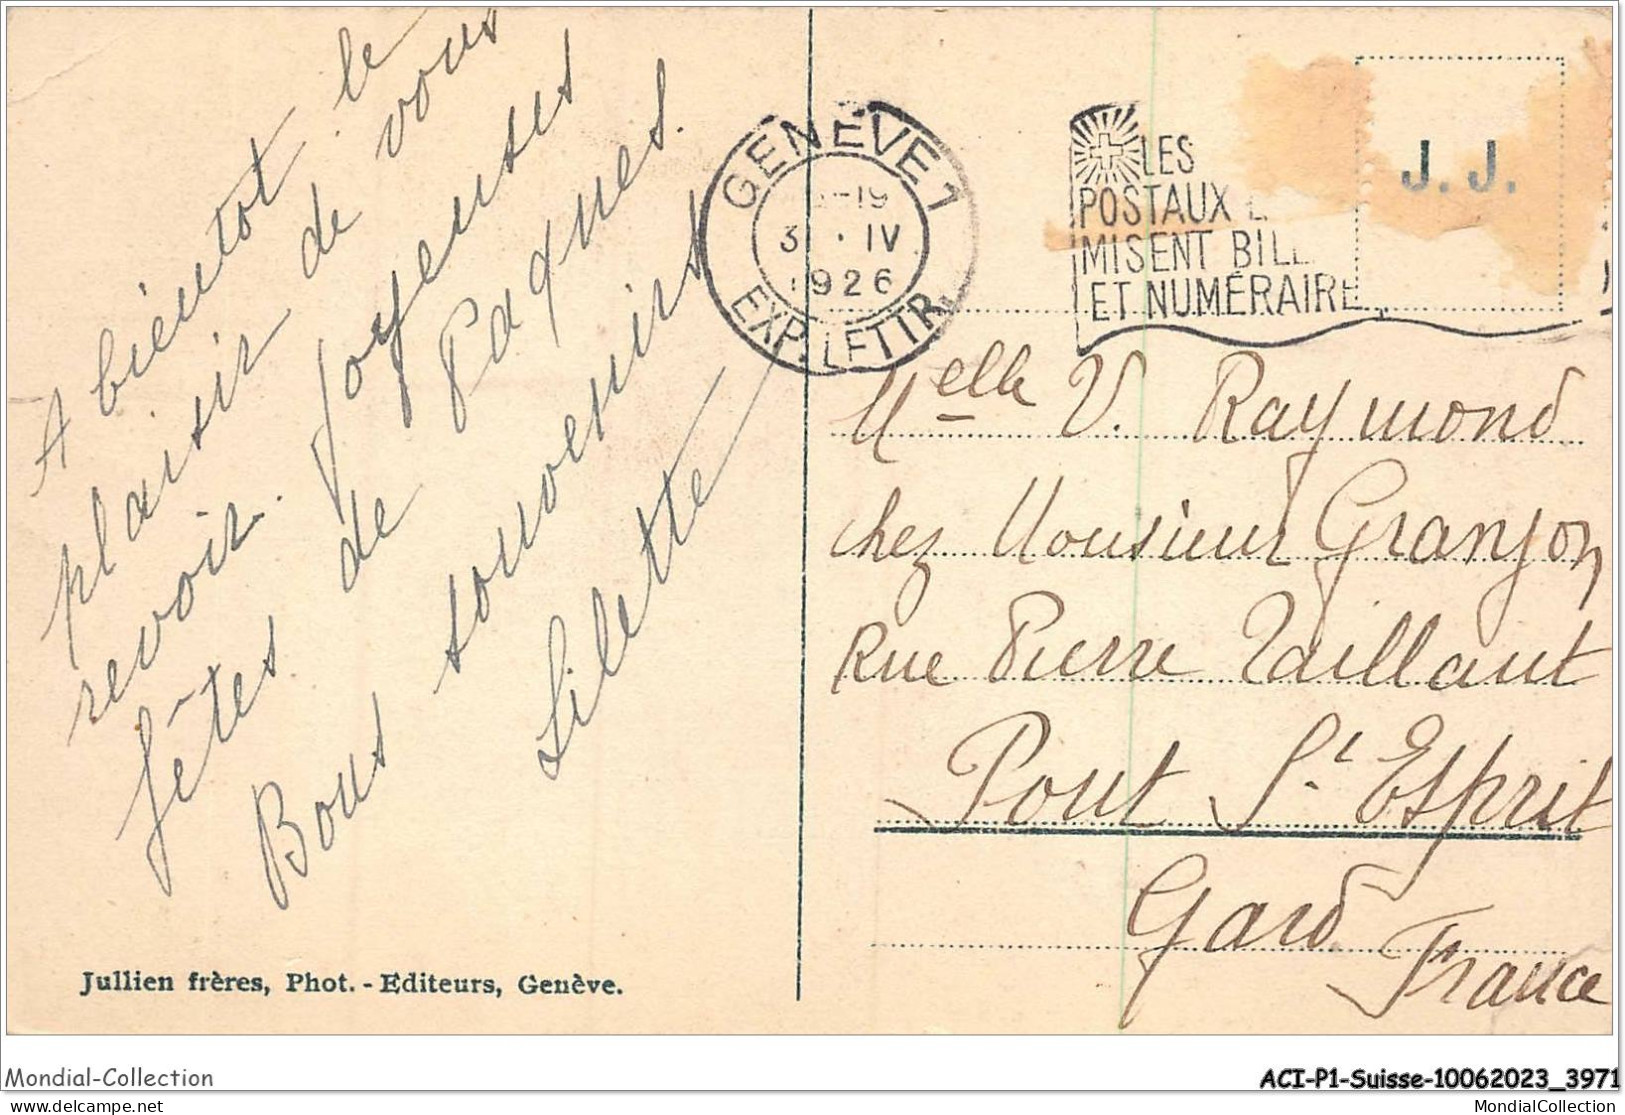 A bientot le
plaisir de vous
revoir. Joyeuses
fêtes de Paques.
Bons souvenirs
Lilette
Jullien frères, Phot. - Editeurs, Genève.
GENÈVE 1
-19
3 . IV
1926
EXP. LETTR.
LES
POSTAUX
MISENT BILL
ET NUMÉRAIRE
J. J.
Melle V. Raymond
chez Monsieur Granjon
Rue Pierre Taillant
Pont St Esprit
Gard
France
Mondial-Collection
ACI-P1-Suisse-10062023_3971
www.delcampe.net
MondialCollection